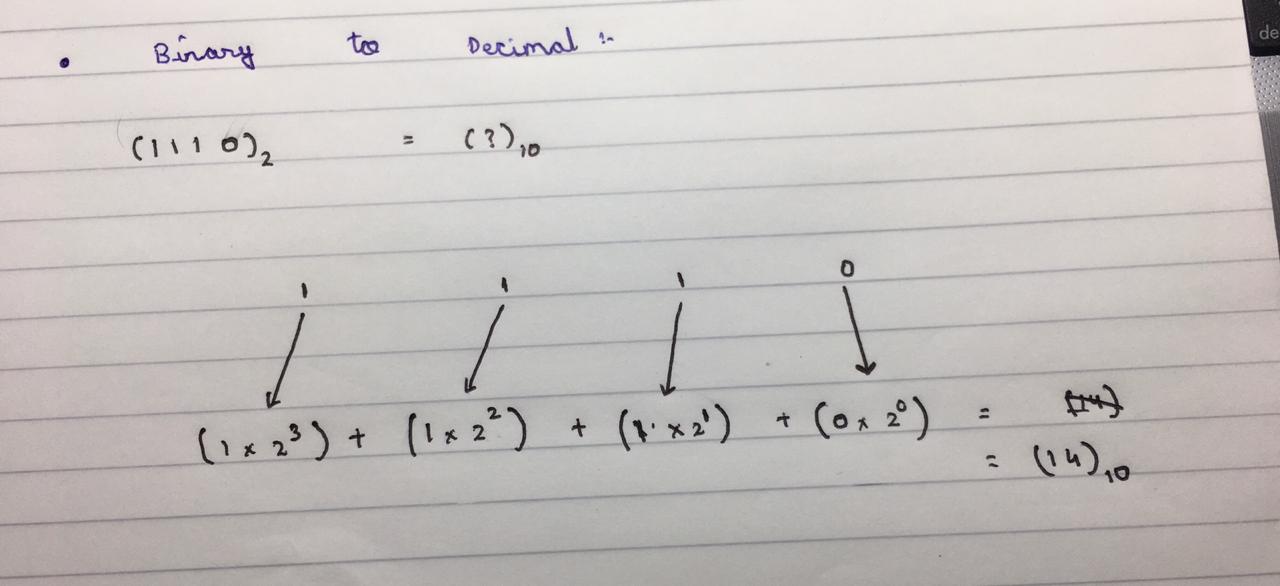 • Binary to Decimal :-
(1110)₂ = (?)₁₀
1 1 1 0
(1 × 2³) + (1 × 2²) + (1 × 2¹) + (0 × 2⁰) = (14)
= (14)₁₀
de